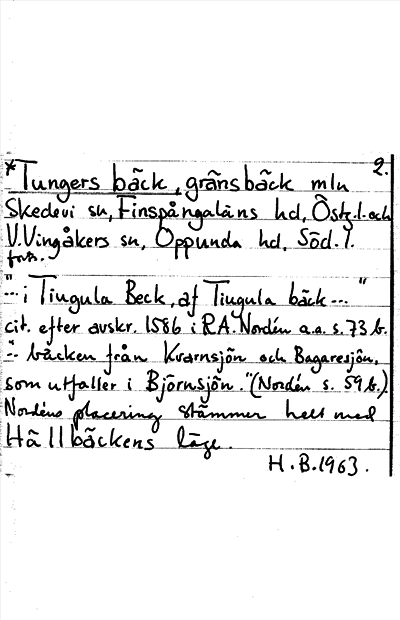 2.
*Tungers bäck, gränsbäck mln
Skedevi sn, Finspångaläns hd, Östg.l. och
V.Vingåkers sn, Oppunda hd, Söd. l.
forts.
"--- i Tiugula Beck, af Tiugula bäck --- "
cit. efter avskr. 1586 i RA. Nordén a.a. s. 73 b.
"- bäcken från Kvarnsjön och Bagaresjön,
som utfaller i Björnsjön." (Nordén s. 59 b.)
Nordéns placering stämmer helt med
Hällbäckens läge.
H.B.1963.